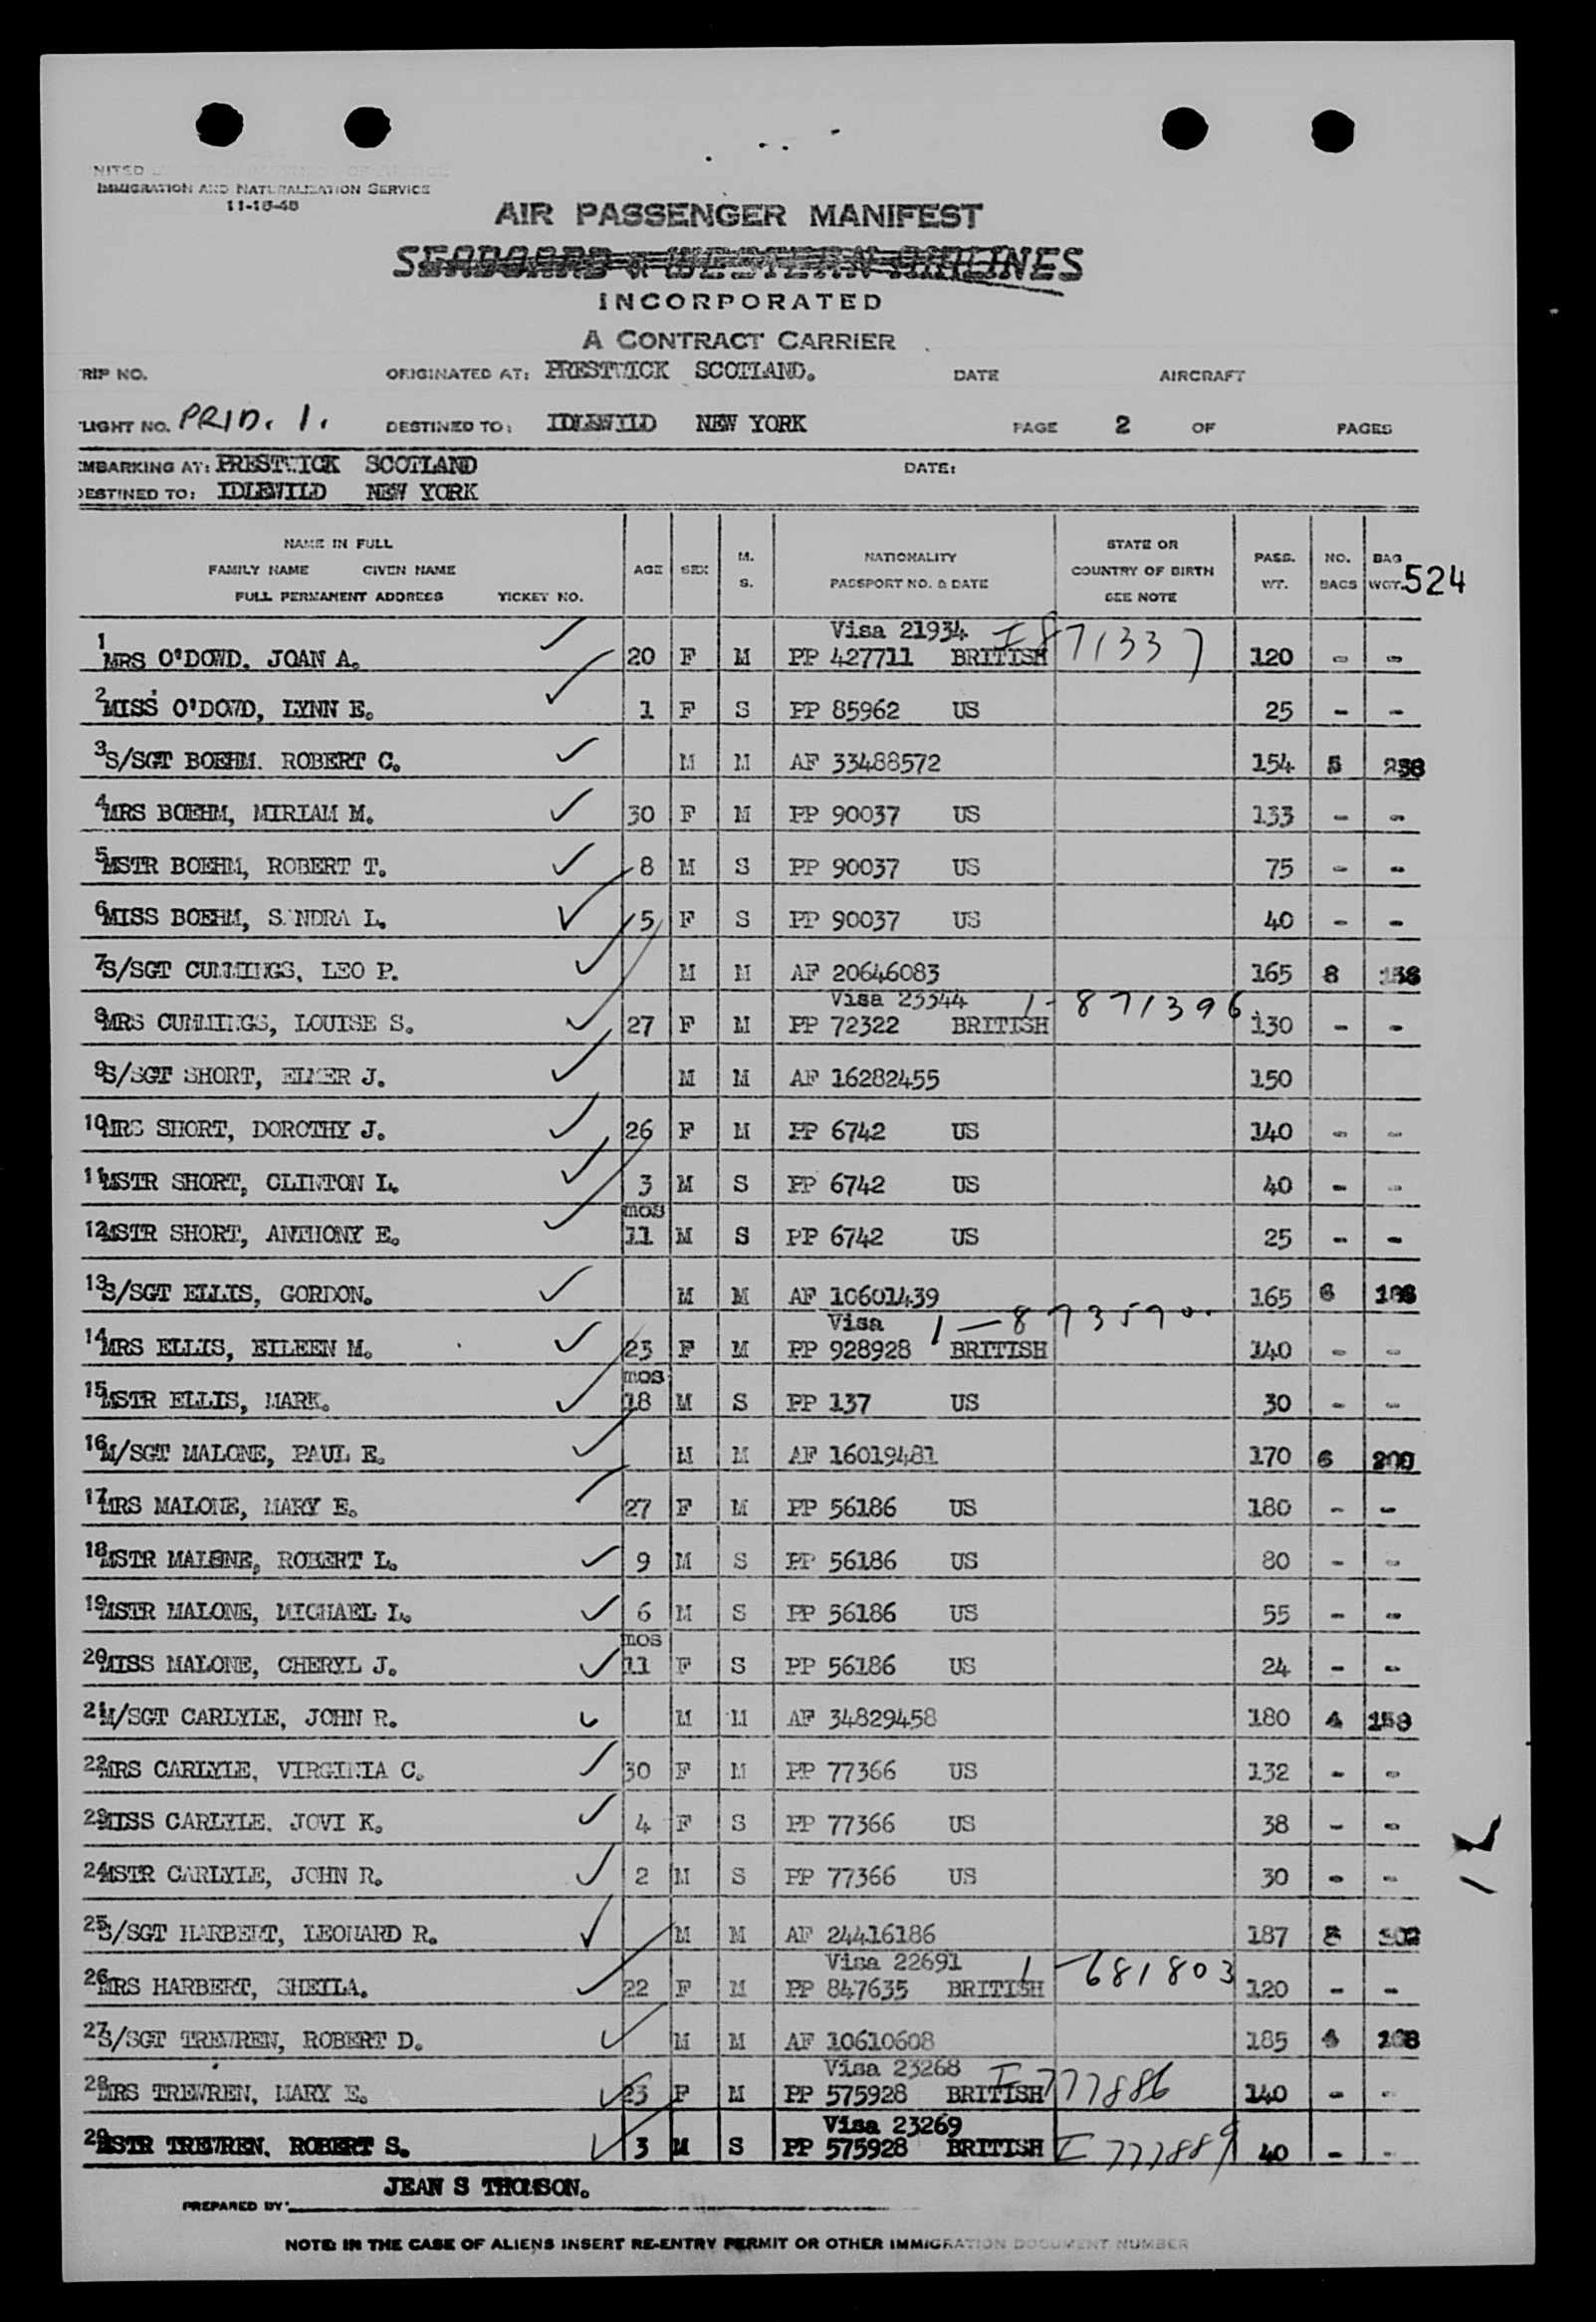 NITED
IMMIGRATION AND NATURALIZATION SERVICE
11-15-48
AIR PASSENGER MANIFEST
SEABOARD & WESTERN AIRLINES
INCORPORATED
A CONTRACT CARRIER
RIP NO. ORIGINATED AT: PRESTWICK SCOTLAND. DATE AIRCRAFT
LIGHT NO. PRID. 1. DESTINED TO: IDLEWILD NEW YORK PAGE 2 OF PAGES
MBARKING AT: PRESTWICK SCOTLAND DATE:
DESTINED TO: IDLEWILD NEW YORK
NAME IN FULL
FAMILY NAME GIVEN NAME
FULL PERMANENT ADDRESS TICKET NO. AGE SEX M. S. NATIONALITY PASSPORT NO. & DATE STATE OR COUNTRY OF BIRTH SEE NOTE PASS. WT. NO. BAGS BAG WGT. 524
Visa 21934 I 871337
1 MRS O'DOWD. JOAN A. 20 F M PP 427711 BRITISH 120 - -
2 MISS O'DOWD, LYNN E. 1 F S PP 85962 US 25 - -
3 S/SGT BOEHM. ROBERT C. M M AF 33488572 154 5
4 MRS BOEHM, MIRIAM M. 30 F M PP 90037 US 133 - -
5 MSTR BOEHM, ROBERT T. 8 M S PP 90037 US 75 - -
6 MISS BOEHM, S NDRA L. 5 F S PP 90037 US 40 - -
7 S/SGT CUMMINGS, LEO P. M M AF 20646083 165 8
Visa 23344 1-871396
8 MRS CUMMINGS, LOUISE S. 27 F M PP 72322 BRITISH 130 - -
9 S/SGT SHORT, ELMER J. M M AF 16282455 150
10 MRS SHORT, DOROTHY J. 26 F M PP 6742 US 140 - -
11 MSTR SHORT, CLINTON L. 3 M S PP 6742 US 40 - -
mos
12 MSTR SHORT, ANTHONY E. 11 M S PP 6742 US 25 - -
13 S/SGT ELLIS, GORDON. M M AF 10601439 165 6
Visa 1-873590.
14 MRS ELLIS, EILEEN M. 23 F M PP 928928 BRITISH 140 - -
mos
15 MSTR ELLIS, MARK. 18 M S PP 137 US 30 - -
16 M/SGT MALONE, PAUL E. M M AF 16019481 170 6 200
17 MRS MALONE, MARY E. 27 F M PP 56186 US 180 - -
18 MSTR MALONE, ROBERT L. 9 M S PP 56186 US 80 - -
19 MSTR MALONE, MICHAEL L. 6 M S PP 56186 US 55 - -
mos
20 MISS MALONE, CHERYL J. 11 F S PP 56186 US 24 - -
21 M/SGT CARLYLE, JOHN R. M M AF 34829458 180 4
22 MRS CARLYLE, VIRGINIA C. 30 F M PP 77366 US 132 - -
23 MISS CARLYLE. JOVI K. 4 F S PP 77366 US 38 - -
24 MSTR CARLYLE, JOHN R. 2 M S PP 77366 US 30 - -
25 S/SGT HARBERT, LEONARD R. M M AF 24416186 187
Visa 22691 1-681803
26 MRS HARBERT, SHEILA. 22 F M PP 847635 BRITISH 120 - -
27 S/SGT TREWREN, ROBERT D. M M AF 10610608 185
Visa 23268 I 777886
28 MRS TREWREN, MARY E. 23 F M PP 575928 BRITISH 140 - -
Visa 23269
29 MSTR TREWREN. ROBERT S. 3 M S PP 575928 BRITISH I 777889 40 - -
JEAN S THOMSON.
PREPARED BY:
NOTE: IN THE CASE OF ALIENS INSERT RE-ENTRY PERMIT OR OTHER IMMIGRATION DOCUMENT NUMBER